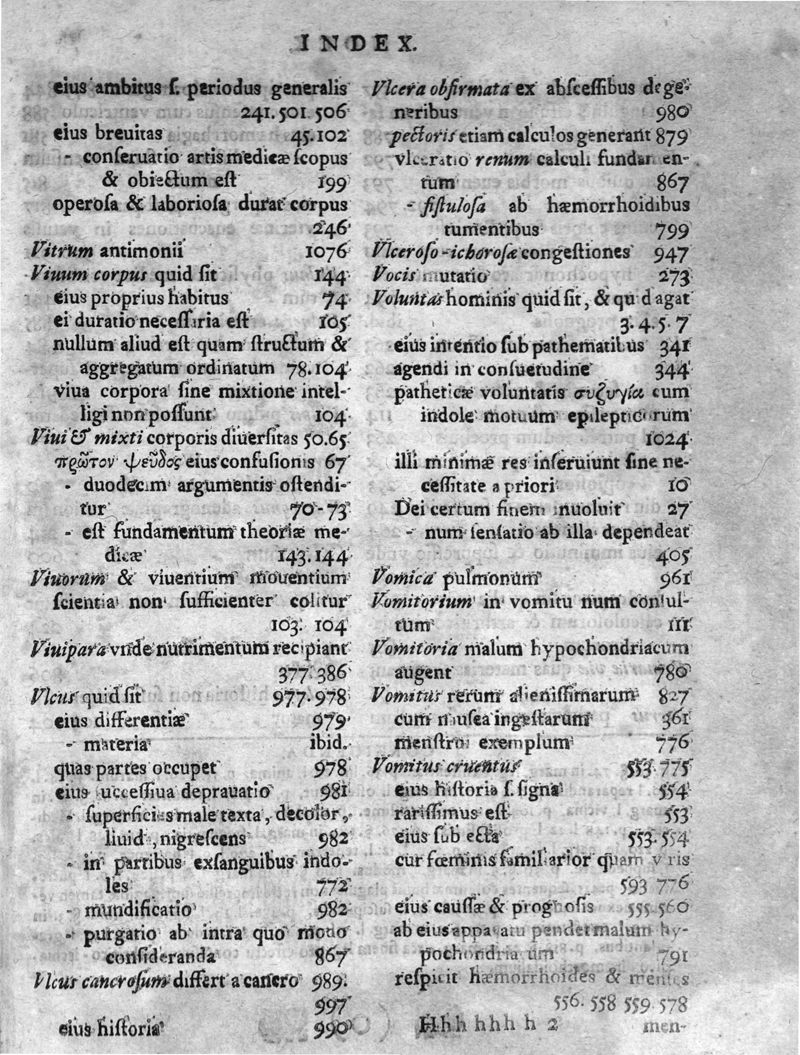 INDEX.
eius ambitus ſ. periodus generalis
241. 501. 506
eius breuitas 45. 102
- conſeruatio artis medicæ ſcopus
& obiectum eſt 199
operoſa & laborioſa durat corpus
246
Vitrum antimonii 1076
Viuum corpus quid ſit 144
eius proprius habitus 74
ei duratio neceſſaria eſt 105
nullum aliud eſt quam ſtructum &
aggregatum ordinatum 78. 104
viua corpora ſine mixtione intel-
ligi non poſſunt 104
Viui & mixti corporis diuerſitas 50. 65
πρῶτον ψεῦδος eius confuſionis 67
- duodecim argumentis oſtendi-
tur 70-73
- eſt fundamentum theoriæ me-
dicæ 143. 144
Viuorum & viuentium mouentium
ſcientia non ſufficienter colitur
103. 104
Viuipara vnde nutrimentum recipiant
377. 386
Vlcus quid ſit 977. 978
eius differentiæ 979
- materia ibid.
quas partes occupet 978
eius ucceſſiua deprauatio 981
- ſuperficies male texta, decolor,
liuid , nigreſcens 982
- in partibus exſanguibus indo-
les 772
- mundificatio 982
- purgatio ab intra quo modo
conſideranda 867
Vlcus cancroſum differt a cancro 989.
997
eius hiſtoria 990
Vlcera obfirmata ex abſceſſibus dege-
neribus 980
pectoris etiam calculos generant 879
vlceratio renum calculi fundar en-
tum 867
- fiſtuloſa ab hæmorrhoidibus
tumentibus 799
Vlceroſo-ichoroſæ congeſtiones 947
Vocis mutatio 273
Voluntas hominis quid ſit, & qu d agat
3. 4. 5. 7
eius intentio ſub pathematibus 341
agendi in conſuetudine 344
patheticæ voluntatis συζυγία cum
indole motuum epilepticorum
1024
illi minimæ res inſeruiunt ſine ne-
ceſſitate a priori 10
Dei certum finem inuoluit 27
- num ſenſatio ab illa dependeat
405
Vomica pulmonum 961
Vomitorium in vomitu num conſul-
tum 111
Vomitoria malum hypochondriacum
augent 780
Vomitus rerum alieniſſimarum 827
cum nauſea ingeſtarum 361
menſtrui exemplum 776
Vomitus cruentus 553. 775
eius hiſtoria ſ. ſigna 554
rariſſimus eſt 553
eius ſub ecta 553. 554
cur fœminis familiarior quam v ris
593 776
eius cauſſæ & prognoſis 555. 560
ab eius apparatu pendet malum hy-
pochondria um 791
reſpicit hæmorrhoides & menſes
556. 558 559. 578
Hhh hhh h 2 men-